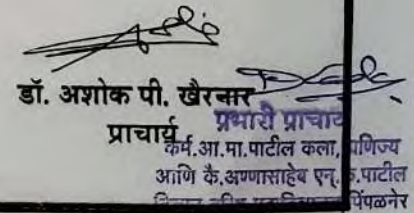 डॉ. अशोक पी. खैरनार
प्राचार्य
प्रभारी प्राचार्य
कर्म.आ.मा.पाटील कला, वाणिज्य
आणि कै.अण्णासाहेब एन्.के.पाटील
पिंपळनेर